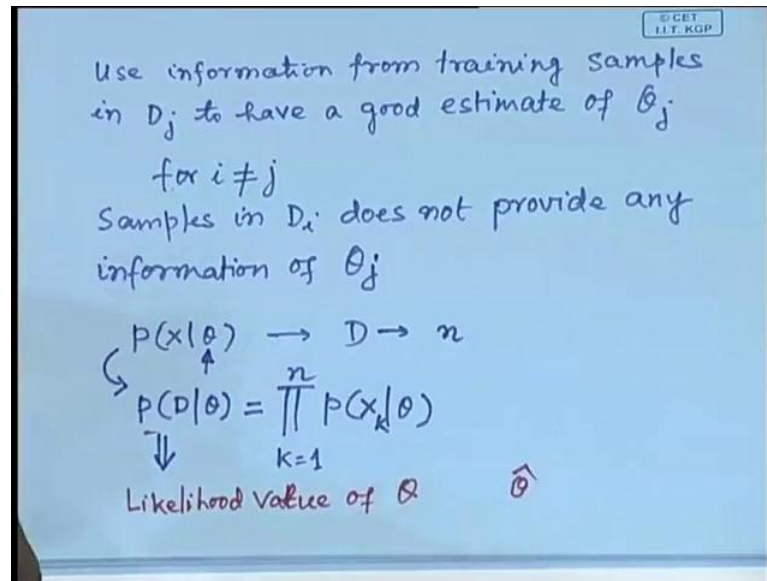 © CET
I.I.T. KGP
Use information from training samples
in Dj to have a good estimate of θj
for i ≠ j
Samples in Di does not provide any
information of θj
p(x|θ) → D → n
↑
p(D|θ) = ∏ p(xk|θ)
n
k=1
⇓
Likelihood Value of θ θ̂